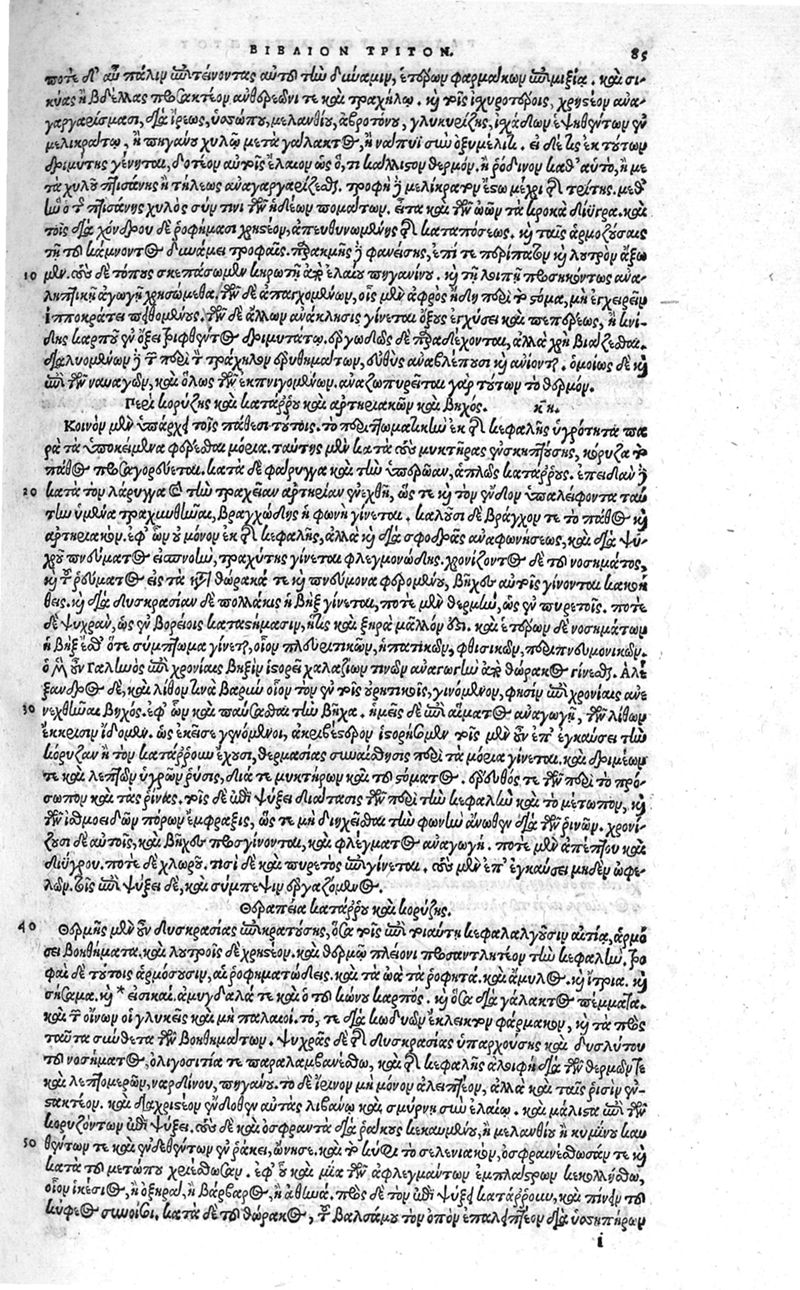 ΒΙΒΛΙΟΝ ΤΡΙΤΟΝ. 85
ποτὲ δ' αὖ πάλιν ἐπιτείνοντας αὐτοῦ τὴν δύναμιν, ἑτέρων φαρμάκων ἐπιμιξία. καὶ σι-
κύας ἢ βδέλλας προσακτέον ἀνθερεῶνι τε καὶ τραχήλῳ. καὶ τοῖς ἰσχυροτέροις, χρηστέον ἀνα-
γαργαρίσμασι, διὰ ἴρεως, ὑσώπου, μελανθίου, ἀβροτόνου, γλυκυρίζης, ἰσχάδων ἑψηθέντων ἐν
μελικράτῳ, ἢ πηγάνου χυλῷ μετὰ γάλακτος, ἢ νάπυϊ σὺν ὀξυμέλιτι. εἰ δέ τις ἐκ τούτων
δριμύτης γένηται, δοτέον αὐτοῖς ἔλαιον ὡς ὅ, τι κάλλιστον θερμόν, ἢ ῥόδινον καθ' αὑτὸ, ἢ με
τὰ χυλοῦ πτισάνης ἢ τήλεως ἀναγαργαρίζεσθαι. τροφὴ δὲ μελίκρατον ἔστω μέχρι τῆς τρίτης. μεθ'
ἣν ὁ τῆς πτισάνης χυλὸς σύν τινι τῶν ἡδέων πομάτων. εἶτα καὶ τῶν ὠῶν τὰ κροκὰ δίυγρα. καὶ
τοῖς διὰ χόνδρου δὲ ῥοφήμασι χρηστέον, ἀπευθυνομένης τῆς καταπόσεως. καὶ ταῖς ἁρμοζούσαις
τῇ τοῦ κάμνοντος δυνάμει τροφαῖς. παρακμῆς δὲ φανείσης, ἐπί τε περίπατον καὶ λουτρὸν ἄξω
10 μεν. τοὺς δὲ τόπους σκεπάσωμεν κηρωτῇ ἀπὸ ἐλαίου πηγανίνου. καὶ τῇ λοιπῇ προσηκόντως ἀνα-
ληπτικῇ ἀγωγῇ χρησώμεθα. τῶν δὲ ἀπαγχομένων, οἷς μὲν ἀφρὸς ἤδη περὶ τὸ στόμα, μὴ ἐγχειρεῖν
ἱπποκράτει πειθομένους. τῶν δὲ ἄλλων ἀνάκλησις γίνεται ὄξους ἐγχύσει καὶ πεπέρεως, ἢ κνί-
δης καρποῦ ἐν ὄξει τριφθέντος δριμυτάτῳ. ἐργωδῶς δὲ παραδέχονται, ἀλλὰ χρὴ βιάζεσθαι.
διαλυομένων δὲ τῶν περὶ τὸν τράχηλον ἐρυθημάτων, εὐθὺς ἀναβλέπουσι καὶ ἀνίονται. ὁμοίως δὲ καὶ
ἐπὶ τῶν ναυαγῶν, καὶ ὅλως τῶν ἐκπνιγομένων. ἀναζωπυρεῖται γὰρ τούτων τὸ θερμόν.
Περὶ κορύζης καὶ κατάρρου καὶ ἀρτηριακῶν καὶ βηχός. κη.
Κοινὸν μὲν ὑπάρχει τοῖς πάθεσι τούτοις. τὸ περιττωματικὴν ἐκ τῆς κεφαλῆς ὑγρότητα πα
ρὰ τὰ ὑποκείμενα φέρεσθαι μόρια. ταύτης μὲν κατὰ τοὺς μυκτῆρας ἐνσκηπτούσης, κόρυζα τὸ
πάθος προσαγορεύεται. κατὰ δὲ φάρυγγα καὶ τὴν ὑπερῴαν, ἁπλῶς κατάρρους. ἐπειδὰν δὲ
20 κατὰ τὸν λάρυγγα καὶ τὴν τραχεῖαν ἀρτηρίαν ἐνεχθῇ, ὥς τε καὶ τὸν ἔνδον ὑπαλείφοντα ταύ
την ὑμένα τραχυνθῆναι, βραγχώδης ἡ φωνὴ γίνεται. καλοῦσι δὲ βράγχον τε τὸ πάθος καὶ
ἀρτηριακόν. ἐφ' ὧν οὐ μόνον ἐκ τῆς κεφαλῆς, ἀλλὰ καὶ διὰ σφοδρᾶς ἀναφωνήσεως, καὶ διὰ ψυ-
χροῦ πνεύματος εἰσπνοὴν, τραχύτης γίνεται φλεγμονώδης. χρονίζοντος δὲ τοῦ νοσήματος,
καὶ τοῦ ῥεύματος εἰς τὰ κατὰ θώρακά τε καὶ πνεύμονα φερομένου, βῆχες αὐτοῖς γίνονται κακοή
θεις. καὶ διὰ δυσκρασίαν δὲ πολλάκις ἡ βὴξ γίνεται, ποτὲ μὲν θερμὴν, ὡς ἐν πυρετοῖς. ποτὲ
δὲ ψυχρὰν, ὡς ἐν βορείοις καταστήμασιν, ἥτις καὶ ξηρὰ μᾶλλόν ἐστι. καὶ ἑτέρων δὲ νοσημάτων
ἡ βὴξ ἔσθ' ὅτε σύμπτωμα γίνεται, οἷον πλευριτικῶν, ἡπατικῶν, φθισικῶν, περιπνευμονικῶν.
ὁ μὲν οὖν γαληνὸς ἐπὶ χρονίαις βηξὶν ἱστορεῖ χαλαζίων τινῶν ἀναγωγὴν ἀπὸ θώρακος γίνεσθαι. Ἀλέ
ξανδρος δὲ, καὶ λίθον τινὰ βαρὺν οἷον τὸν ἐν τοῖς οὐρητικοῖς, γινόμενον, φησὶν ἐπὶ χρονίαις ἀνε
30 νεχθῆναι βηχός. ἐφ' ὧν καὶ παύσασθαι τὴν βῆχα. ἡμεῖς δὲ ἐπὶ αἵματος ἀναγωγῇ, τῶν λίθων
ἔκκρισιν ἴδομεν. ὡς ἐκεῖσε γενόμενοι, ἀκριβέστερον ἱστορήσομεν. τοῖς μὲν οὖν ἐπ' ἐγκαύσει τὴν
κόρυζαν ἢ τὸν κατάρρουν ἔχουσι, θερμασίας συναίσθησις περὶ τὰ μόρια γίνεται. καὶ δριμέων
τε καὶ λεπτῶν ὑγρῶν ῥύσις, διά τε μυκτήρων καὶ τοῦ στόματος. ἔρευθός τε τῶν περὶ τὸ πρό-
σωπον καὶ τὰς ῥῖνας. τοῖς δὲ ἐπὶ ψύξει διάτασις τῶν περὶ τὴν κεφαλὴν καὶ τὸ μέτωπον, καὶ
τῶν ἰσθμοειδῶν πόρων ἔμφραξις, ὥς τε μὴ διηχεῖσθαι τὴν φωνὴν ἄνωθεν διὰ τῶν ῥινῶν. χρονί-
ζουσι δὲ αὐτοῖς, καὶ βῆχες προσγίνονται, καὶ φλέγματος ἀναγωγή. ποτὲ μὲν ἀπέπτου καὶ
διύγρου. ποτὲ δὲ χλωροῦ. τισὶ δὲ καὶ πυρετὸς ἐπιγίνεται. τοὺς μὲν ἐπ' ἐγκαύσει μηδὲν ὠφε-
λῶν. τοῖς ἐπὶ ψύξει δὲ, καὶ σύμπεψιν ἐργαζόμενος.
Θεραπεία κατάρρου καὶ κορύζης.
40 Θερμῆς μὲν οὖν δυσκρασίας ἐπικρατούσης, ὅσα τοῖς ἐπὶ τοιαύτῃ κεφαλαλγοῦσιν αἰτίᾳ, ἁρμό
σει βοηθήματα. καὶ λουτροῖς δὲ χρηστέον. καὶ θερμῷ πλείονι προσαντλητέον τὴν κεφαλήν. τρο
φαὶ δὲ τούτοις ἁρμόσουσιν, αἱ ῥοφηματώδεις. καὶ τὰ ὠὰ τὰ ῥοφητά. καὶ ἄμυλος. καὶ ἴτρια. καὶ
σήσαμα. καὶ * εἰσικαί. ἀμυγδαλά τε καὶ ὁ τοῦ κώνου καρπός. καὶ ὅσα διὰ γάλακτος πέμματα.
καὶ τῶν οἴνων οἱ γλυκεῖς καὶ μὴ παλαιοί. τό, τε διὰ κωδυῶν ἐκλεικτὸν φάρμακον, καὶ τὰ πρὸς
ταῦτα σύνθετα τῶν βοηθημάτων. ψυχρᾶς δὲ τῆς δυσκρασίας ὑπαρχούσης καὶ δυσλύτου
τοῦ νοσήματος, ὀλιγοσιτία τε παραλαμβανέσθω, καὶ τῆς κεφαλῆς ἀλοιφὴ διὰ τῶν θερμῶν τε
καὶ λεπτομερῶν, ναρδίνου, πηγάνου. τὸ δὲ ἴρινον μὴ μόνον ἀλειπτέον, ἀλλὰ καὶ ταῖς ῥισὶν ἐν-
στακτέον. καὶ διαχριστέον ἔνδοθεν αὐτὰς λιβάνῳ καὶ σμύρνῃ σὺν ἐλαίῳ. καὶ μάλιστα ἐπὶ τῶν
κορυζώντων ἐπὶ ψύξει. τοὺς δὲ καὶ ὀσφραντὰ διὰ ῥάκους κεκαυμένου, ἢ μελανθίου ἢ κυμίνου καυ
50 θέντων τε καὶ ἐνδεθέντων ἐν ῥάκει, ὤνησε. καὶ τὸ κῦφι τὸ σεληνιακὸν, ὀσφραινέσθωσάν τε καὶ
κατὰ τοῦ μετώπου χριέσθωσαν. ἐφ' οὗ καὶ μία τῶν ἀφλεγμάντων ἐμπλάστρων κεκολλήσθω,
οἷον ἱκέσιος, ἢ ὀξηρά, ἢ βάρβαρος, ἢ ἀθηνᾶ. πρὸς δὲ τὸν ἐπὶ ψύξει κατάρρουν, καὶ πίνειν τοῦ
κύφεως συνοίσει. κατὰ δὲ τοῦ θώρακος, τῆς βαλσάμου τὸν ὀπὸν ἐπαλειπτέον διὰ ὑοσηπήρων
i